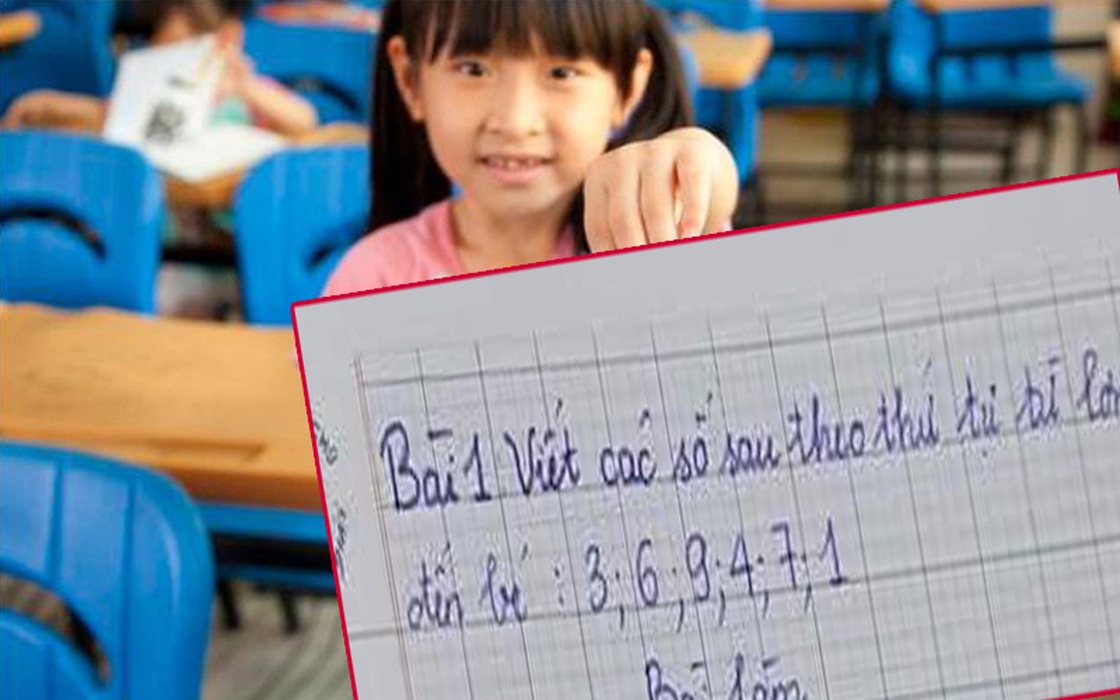 Bài 1 Viết các số sau theo thứ tự từ
đến bé : 3; 6; 9; 4; 7; 1
Bài làm